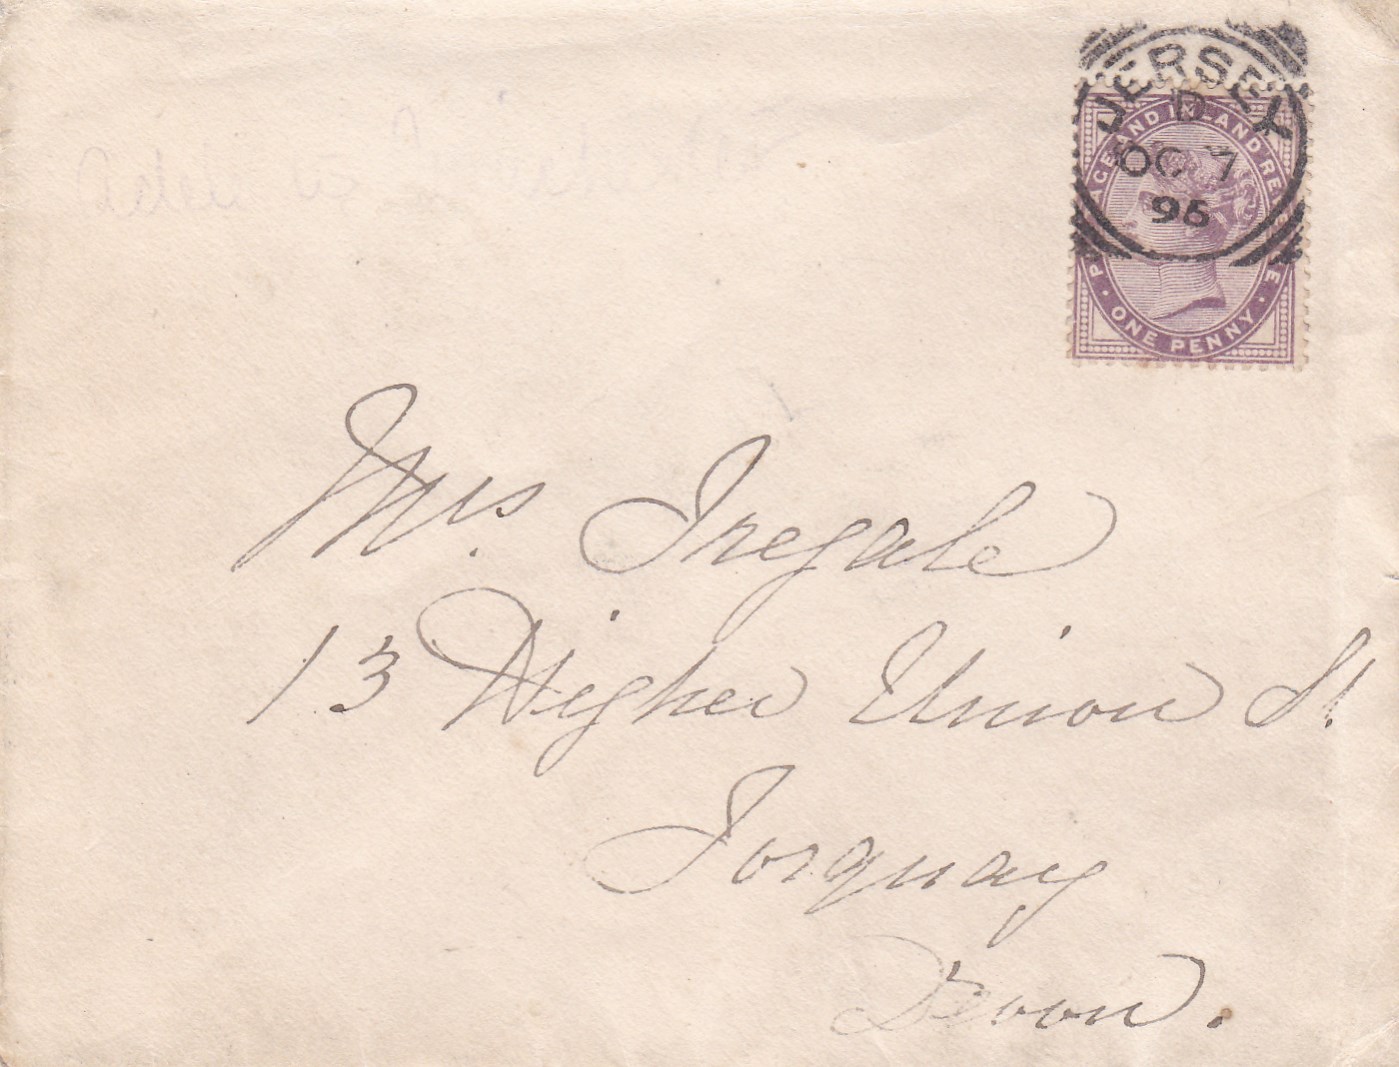 JERSEY
D
OC 7
96
POSTAGE AND INLAND REVENUE
· ONE PENNY ·
Mrs. Tregale
13 Higher Union St.
Torquay
Devon.